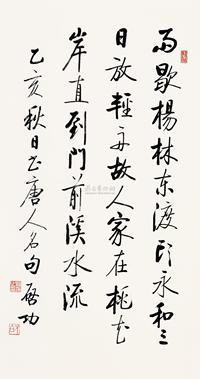 雨歇杨林东渡头永和三
日放轻舟故人家在桃花
岸直到门前溪水流
乙亥秋日书唐人名句启功